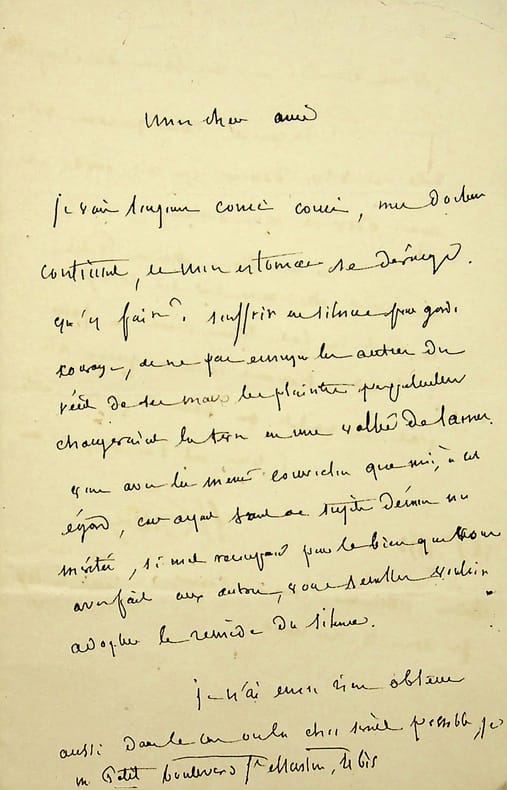 Mon cher ami
Je vais toujours couci couci, mes douleurs
continuent, et mon estomac se dérange.
qu'y faire? souffrir en silence
courage, et ne pas ennuyer les autres du
récit de ses maux les plaintes perpétuelles
changeraient la terre en une vallée de larmes.
vous avez la même conviction que moi, à cet
égard, car ayant tant de sujets
mérités, si mal récompensé pour le bien que vous
avez fait aux autres, vous semblez vouloir
adopter le remède du silence.
Je n'ai encore rien obtenu
aussi dans le cas où la chose serait possible, je
Petit boulevard St Martin, 4 bis